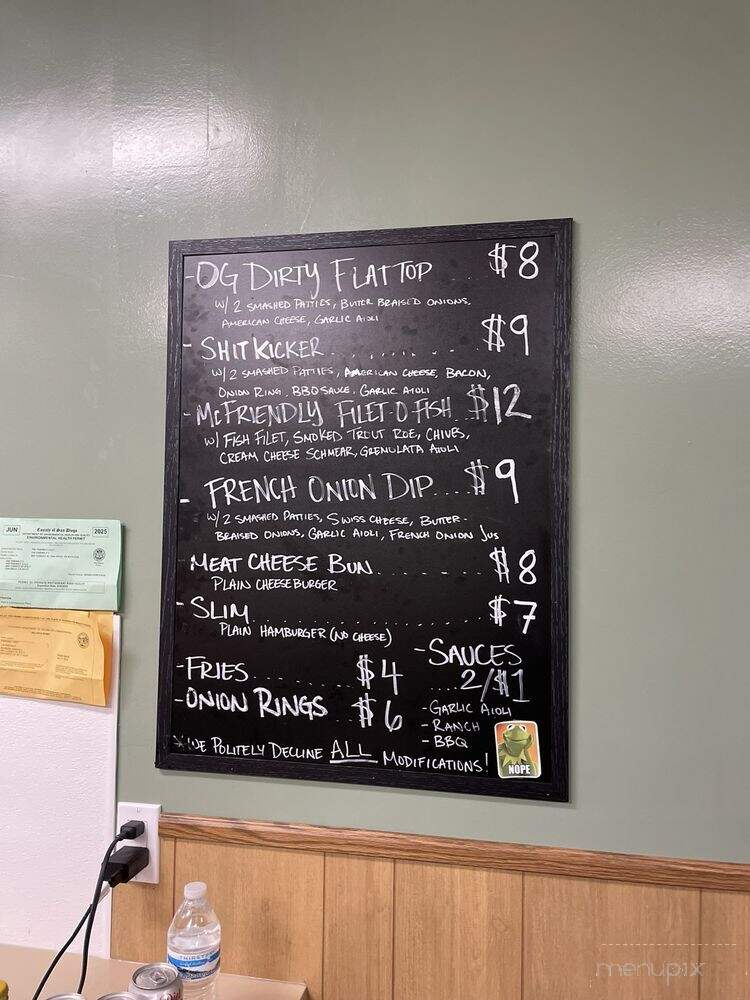 - OG DIRTY FLATTOP .. $8
W/ 2 SMASHED PATTIES, BUTTER BRAISED ONIONS,
AMERICAN CHEESE, GARLIC AIOLI
- SHITKICKER ........ $9
W/ 2 SMASHED PATTIES, AMERICAN CHEESE, BACON,
ONION RING, BBQ SAUCE, GARLIC AIOLI
- MCFRIENDLY FILET-O FISH $12
W/ FISH FILET, SMOKED TROUT ROE, CHIVES,
CREAM CHEESE SCHMEAR, GREMULATA AIOLI
- FRENCH ONION DIP ... $9
W/ 2 SMASHED PATTIES, SWISS CHEESE, BUTTER-
BRAISED ONIONS, GARLIC AIOLI, FRENCH ONION JUS
- MEAT CHEESE BUN ........ $8
PLAIN CHEESEBURGER
- SLIM .............. $7
PLAIN HAMBURGER (NO CHEESE)
- FRIES ....... $4
- ONION RINGS ... $6
- SAUCES
... 2/$1
- GARLIC AIOLI
- RANCH
- BBQ
NOPE
* WE POLITELY DECLINE ALL MODIFICATIONS!
JUN
County of San Diego
2025
ENVIRONMENTAL HEALTH PERMIT
THIRST
menupix